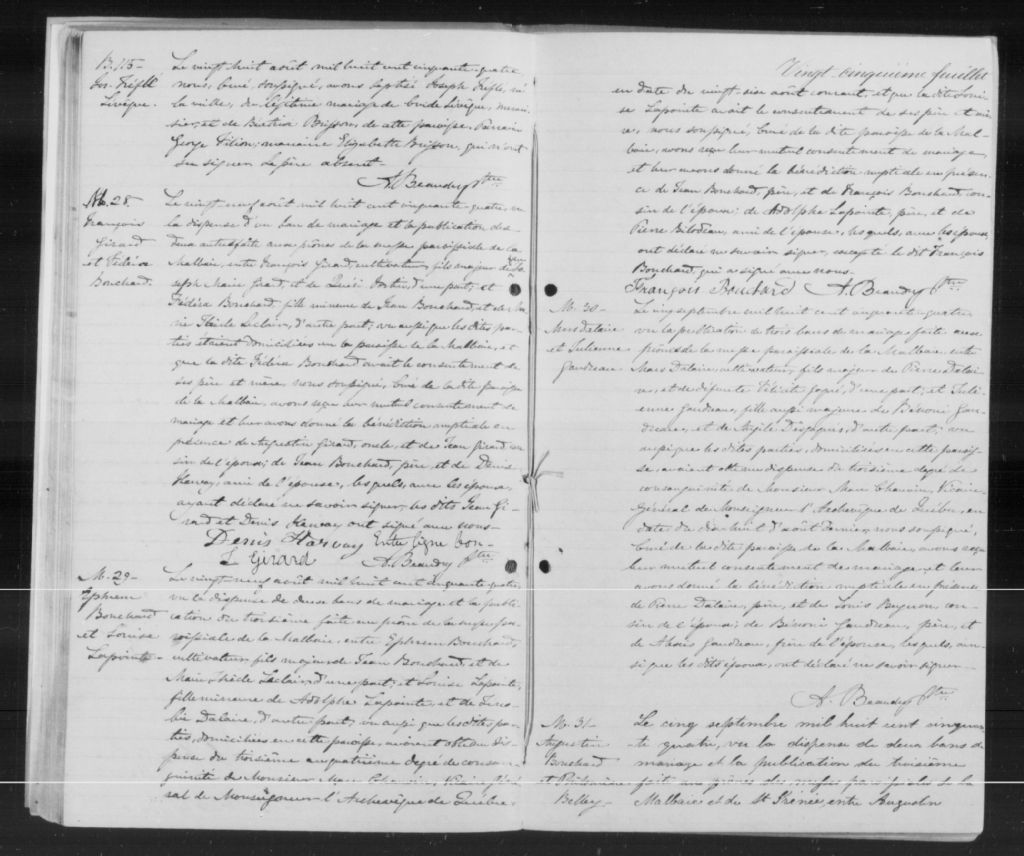 B. 115-
Jos. Trefflé
Lévèque.
Le vingt huit août, mil huit cent cinquante quatre,
nous, curé, soussigné, avons baptisé Joseph Trefflé, né
la veille, du légitime mariage de Lévèque, menui-
sier, et de Brisson, de cette paroisse. Parrain
George Filion; marraine Elizabeth Brisson, qui n'ont
su signer. Le père absent-
A. Beaudry Ptre
M. 28-
François
Girard
et Fédéra
Bouchard.
Le vingt neuf août mil huit cent cinquante quatre, vu
la dispense d'un ban de mariage et la publication des
deux autres faite aux prônes de la messe paroissiale de la
Malbaie, entre François Girard, cultivateur, fils majeur de Jo-
seph Marie Girard, et de d'une part; et
Fédéra Bouchard, fille mineure de Jean Bouchard, et de Ma-
rie Leclair, d'autre part; vu aussi que les dites par-
ties étaient domiciliées en la paroisse de la Malbaie, et
que la dite Fédéra Bouchard avait le consentement de
ses père et mère, nous soussigné, curé de la dite paroisse
de la Malbaie, avons reçu leur mutuel consentement de
mariage et leur avons donné la bénédiction nuptiale en
présence de Augustin Girard, oncle, et de Jean Girard cou-
sin de l'époux; de Jean Bouchard, père, et de Denis
Harvay, ami de l'épouse, lesquels, avec les époux,
ayant déclaré ne savoir signer, les dits Jean Gi-
rard et Denis Harvay ont signé avec nous-
Denis Harvay Entre ligne bon-
J. Girard A. Beaudry Ptre
M. 29-
Ephrem
Bouchard
et Louise
Lapointe-
Le vingt neuf août mil huit cent cinquante quatre,
vu la dispense de deux bans de mariage et la publi-
cation du troisième faite au prône de la messe pa-
roissiale de la Malbaie, entre Ephrem Bouchard,
cultivateur, fils majeur de Jean Bouchard, et de
Marie Leclair, d'une part; et Louise Lapointe,
fille mineure de Adolphe Lapointe, et de
Dalaire, d'autre part; vu aussi que les dites par-
ties, domiciliées en cette paroisse, avaient obtenu dis-
pense du troisième au quatrième degré de consan-
guinité de Monsieur Marc Chauvin, Vicaire Géné-
ral de Monseigneur l'Archevêque de Québec,
Vingt-cinquième feuillet
en date du vingt six août courant, et que la dite Loui-
se Lapointe avait le consentement de ses père et mè-
re, nous soussigné, curé de la dite paroisse de la Mal-
baie, avons reçu leur mutuel consentement de mariage,
et leur avons donné la bénédiction nuptiale en présen-
ce de Jean Bouchard, père, et de François Bouchard, cou-
sin de l'époux; de Adolphe Lapointe, père, et de
Pierre Bilodeau, ami de l'épouse, lesquels, avec les époux
ont déclaré ne savoir signer, excepté le dit François
Bouchard, qui a signé avec nous-
François Bouchard A. Beaudry Ptre
M. 30-
Marc Dalaire
et Julienne
Gaudreau-
Le cinq septembre mil huit cent cinquante quatre
vu la publication de trois bans de mariage faite aux
prônes de la messe paroissiale de la Malbaie entre
Marc Dalaire, cultivateur, fils majeur de Pierre Dalai-
re, et de défunte Félicité d'une part; et Juli-
enne Gaudreau, fille aussi majeure de Bénoni Gau-
dreau, et de d'autre part; vu
aussi que les dites parties, domiciliées en cette parois-
se, avaient obtenu dispense du troisième degré de
consanguinité de Monsieur Marc Chauvin, Vicaire
Général de Monseigneur l'Archevêque de Québec, en
date du dix huit d'août dernier, nous soussigné,
curé de la dite paroisse de la Malbaie, avons reçu
leur mutuel consentement de mariage, et leur
avons donné la bénédiction nuptiale en présence
de Pierre Dalaire, père, et de Louis cou-
sin de l'époux; de Bénoni Gaudreau, père, et
de Gaudreau, frère de l'épouse, lesquels, ain-
si que les dits époux, ont déclaré ne savoir signer-
A. Beaudry Ptre
M. 31-
Augustin
Bouchard
et Philomène
Belley-
Le cinq septembre mil huit cent cinquan-
te quatre, vu la dispense de deux bans de
mariage et la publication du troisième
fait aux prônes des messes paroissiales de la
Malbaie et de St Irénée, entre Augustin